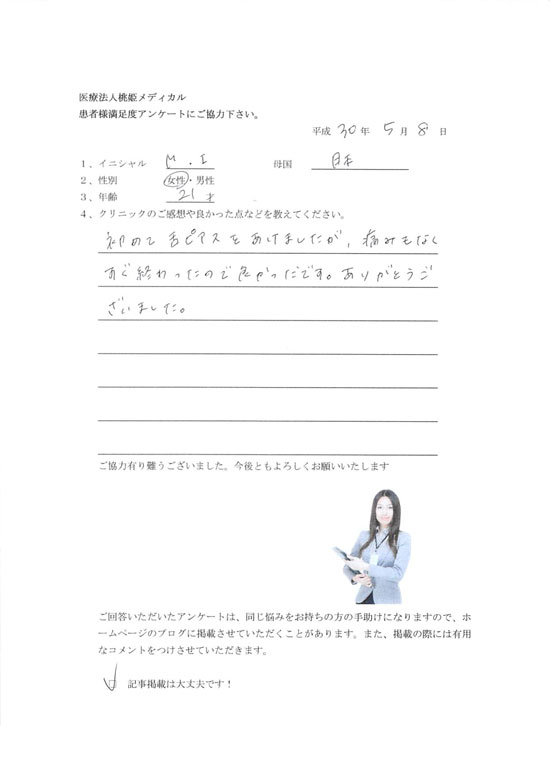 医療法人桃姫メディカル
患者様満足度アンケートにご協力下さい。
平成 30 年 5 月 8 日
1、イニシャル M . I 母国 日本
2、性別 女性・男性
3、年齢 21 才
4、クリニックのご感想や良かった点などを教えてください。
初めて舌ピアスをあけましたが、痛みもなく
すぐ終わったので良かったです。ありがとうご
ざいました。
ご協力有り難うございました。今後ともよろしくお願いいたします
ご回答いただいたアンケートは、同じ悩みをお持ちの方の手助けになりますので、ホ
ームページのブログに掲載させていただくことがあります。また、掲載の際には有用
なコメントをつけさせていただきます。
□ 記事掲載は大丈夫です！